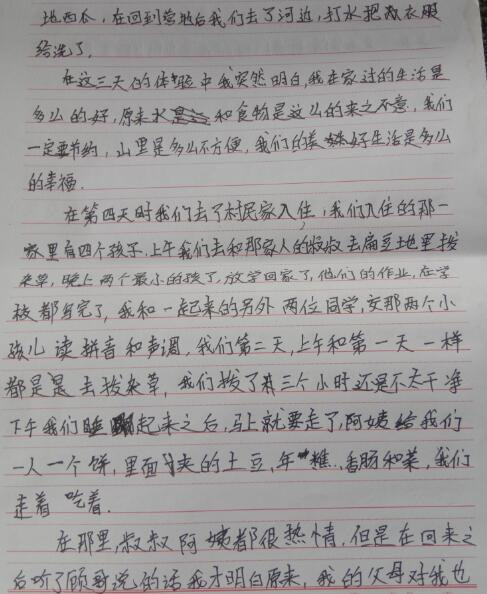 地西瓜，在回到营地后我们去了河边，打水把衣服
给洗了。
在这三天的体验中我突然明白，我在家过的生活是
多么的好，原来水和食物是这么的来之不意，我们
一定要节约，山里是多么不方便，我们的美好生活是多么
的幸福．
在第四天时我们去了村民家入住，我们入住的那一
家里有四个孩子，上午我们去和那家人的叔叔去扁豆土地里拔
来草，晚上两个最小的孩子，放学回家了，他们的作业，在学
校都写完了，我和一起来的另外两位同学，交那两个小
孩儿读拼音和声调，我们第二天，上午和第一天一样
都是去拔来草，我们拔了三个小时还是不太干净
下午我们睡起来之后，马上就要走了，阿姨给我们
一人一个饼，里面夹的土豆，年糕，香肠和菜，我们
走着吃着．
在那里，叔叔阿姨都很热情，但是在回来之
后听了顾哥说的话我才明白原来，我的父母对我也